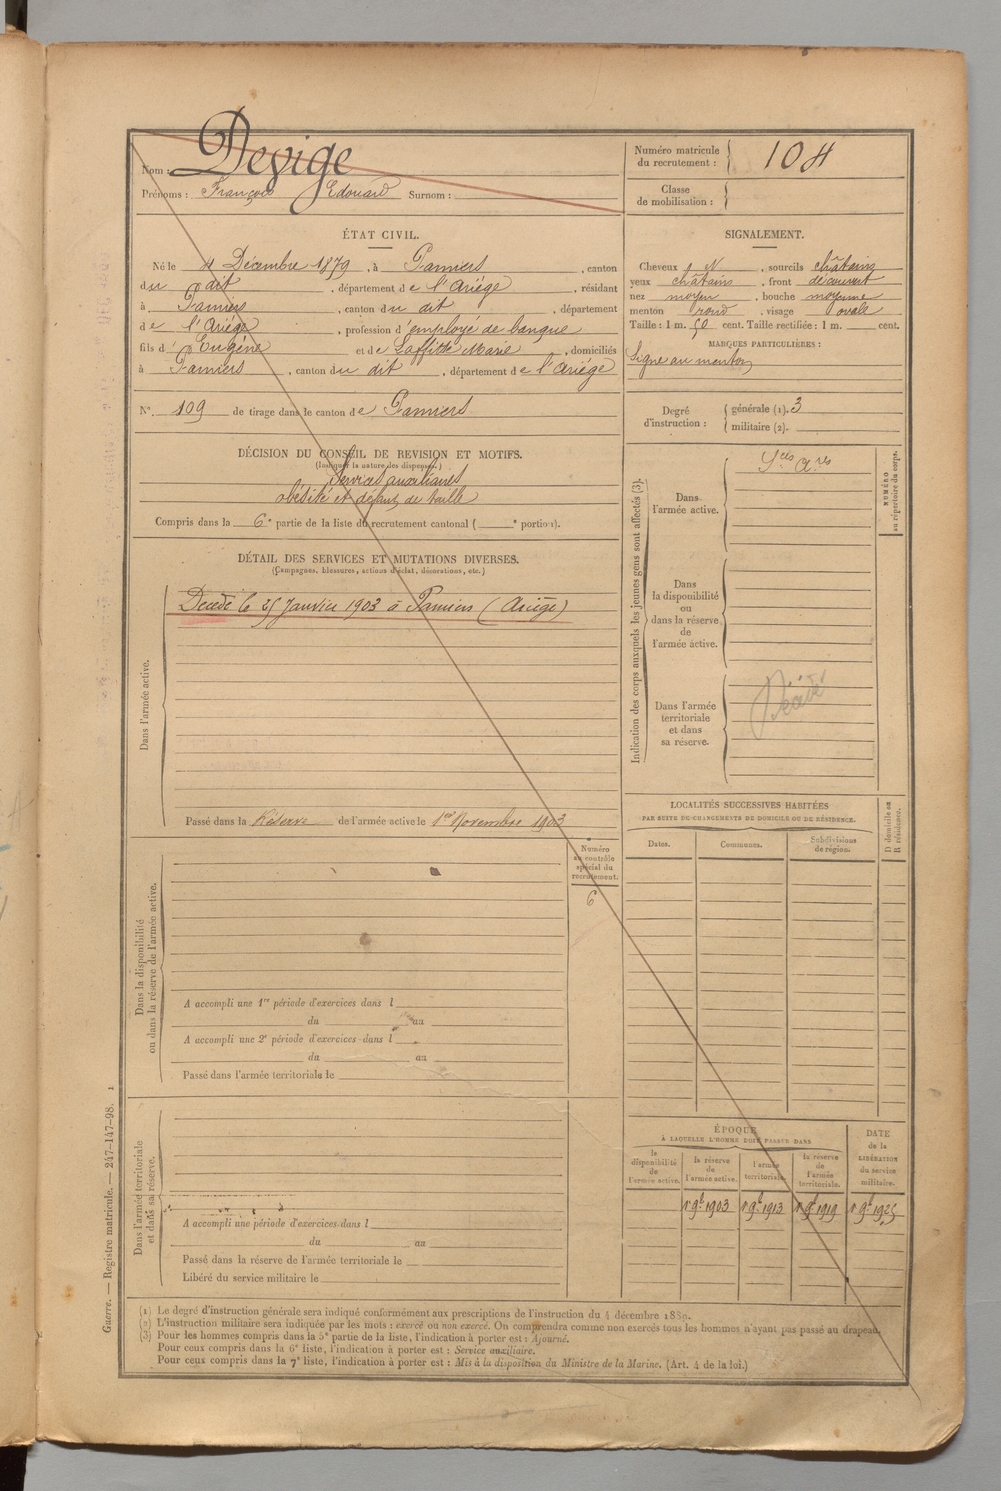 Nom : Devige
Prénoms : François Edouard Surnom :
Numéro matricule du recrutement : 104
Classe de mobilisation :
ÉTAT CIVIL.
Né le 4 Décembre 1879, à Pamiers, canton
du dit, département de l'Ariége, résidant
à Pamiers, canton du dit, département
de l'Ariége, profession d'employé de banque
fils d' Eugène et de Laffitte Marie, domiciliés
à Pamiers, canton du dit, département de l'Ariége
N° 109 de tirage dans le canton de Pamiers
SIGNALEMENT.
Cheveux N, sourcils châtains
yeux châtains, front découvert
nez moyen, bouche moyenne
menton rond, visage ovale
Taille : 1 m. 50 cent. Taille rectifiée : 1 m. cent.
MARQUES PARTICULIÈRES :
Signe au menton
Degré d'instruction : générale (1). 3
militaire (2).
DÉCISION DU CONSEIL DE REVISION ET MOTIFS.
(Indiquer la nature des dispenses.)
Services auxiliaires
obésité et défaut de taille
Compris dans la 6e partie de la liste du recrutement cantonal ( e portion).
DÉTAIL DES SERVICES ET MUTATIONS DIVERSES.
(Campagnes, blessures, actions d'éclat, décorations, etc.)
Dans l'armée active.
Décédé le 25 Janvier 1903 à Pamiers (Ariège)
Passé dans la Réserve de l'armée active le 1er Novembre 1903
Indication des corps auxquels les jeunes gens sont affectés (3).
NUMÉRO au répertoire du corps.
Dans l'armée active.
Sces Ares
Dans la disponibilité ou dans la réserve de l'armée active.
Dans l'armée territoriale et dans sa réserve.
Décédé
LOCALITÉS SUCCESSIVES HABITÉES
PAR SUITE DE CHANGEMENTS DE DOMICILE OU DE RÉSIDENCE.
Dates. Communes. Subdivisions de région.
D domicile ou R résidence.
Numéro au contrôle spécial du recrutement.
6
Dans la disponibilité ou dans la réserve de l'armée active.
A accompli une 1re période d'exercices dans l
du au
A accompli une 2e période d'exercices dans l
du au
Passé dans l'armée territoriale le
Dans l'armée territoriale et dans sa réserve.
A accompli une période d'exercices dans l
du au
Passé dans la réserve de l'armée territoriale le
Libéré du service militaire le
ÉPOQUE
À LAQUELLE L'HOMME DOIT PASSER DANS
la disponibilité de l'armée active.
la réserve de l'armée active.
l'armée territoriale.
la réserve de l'armée territoriale.
DATE de la LIBÉRATION du service militaire.
1r 9b 1903 1r 9b 1913 1r 9b 1919 1r 9b 1925
(1) Le degré d'instruction générale sera indiqué conformément aux prescriptions de l'instruction du 4 décembre 1889.
(2) L'instruction militaire sera indiquée par les mots : exercé ou non exercé. On comprendra comme non exercés tous les hommes n'ayant pas passé au drapeau.
(3) Pour les hommes compris dans la 5e partie de la liste, l'indication à porter est : Ajourné.
Pour ceux compris dans la 6e liste, l'indication à porter est : Service auxiliaire.
Pour ceux compris dans la 7e liste, l'indication à porter est : Mis à la disposition du Ministre de la Marine. (Art. 4 de la loi.)
Guerre. — Registre matricule. — 247-147-98. 1